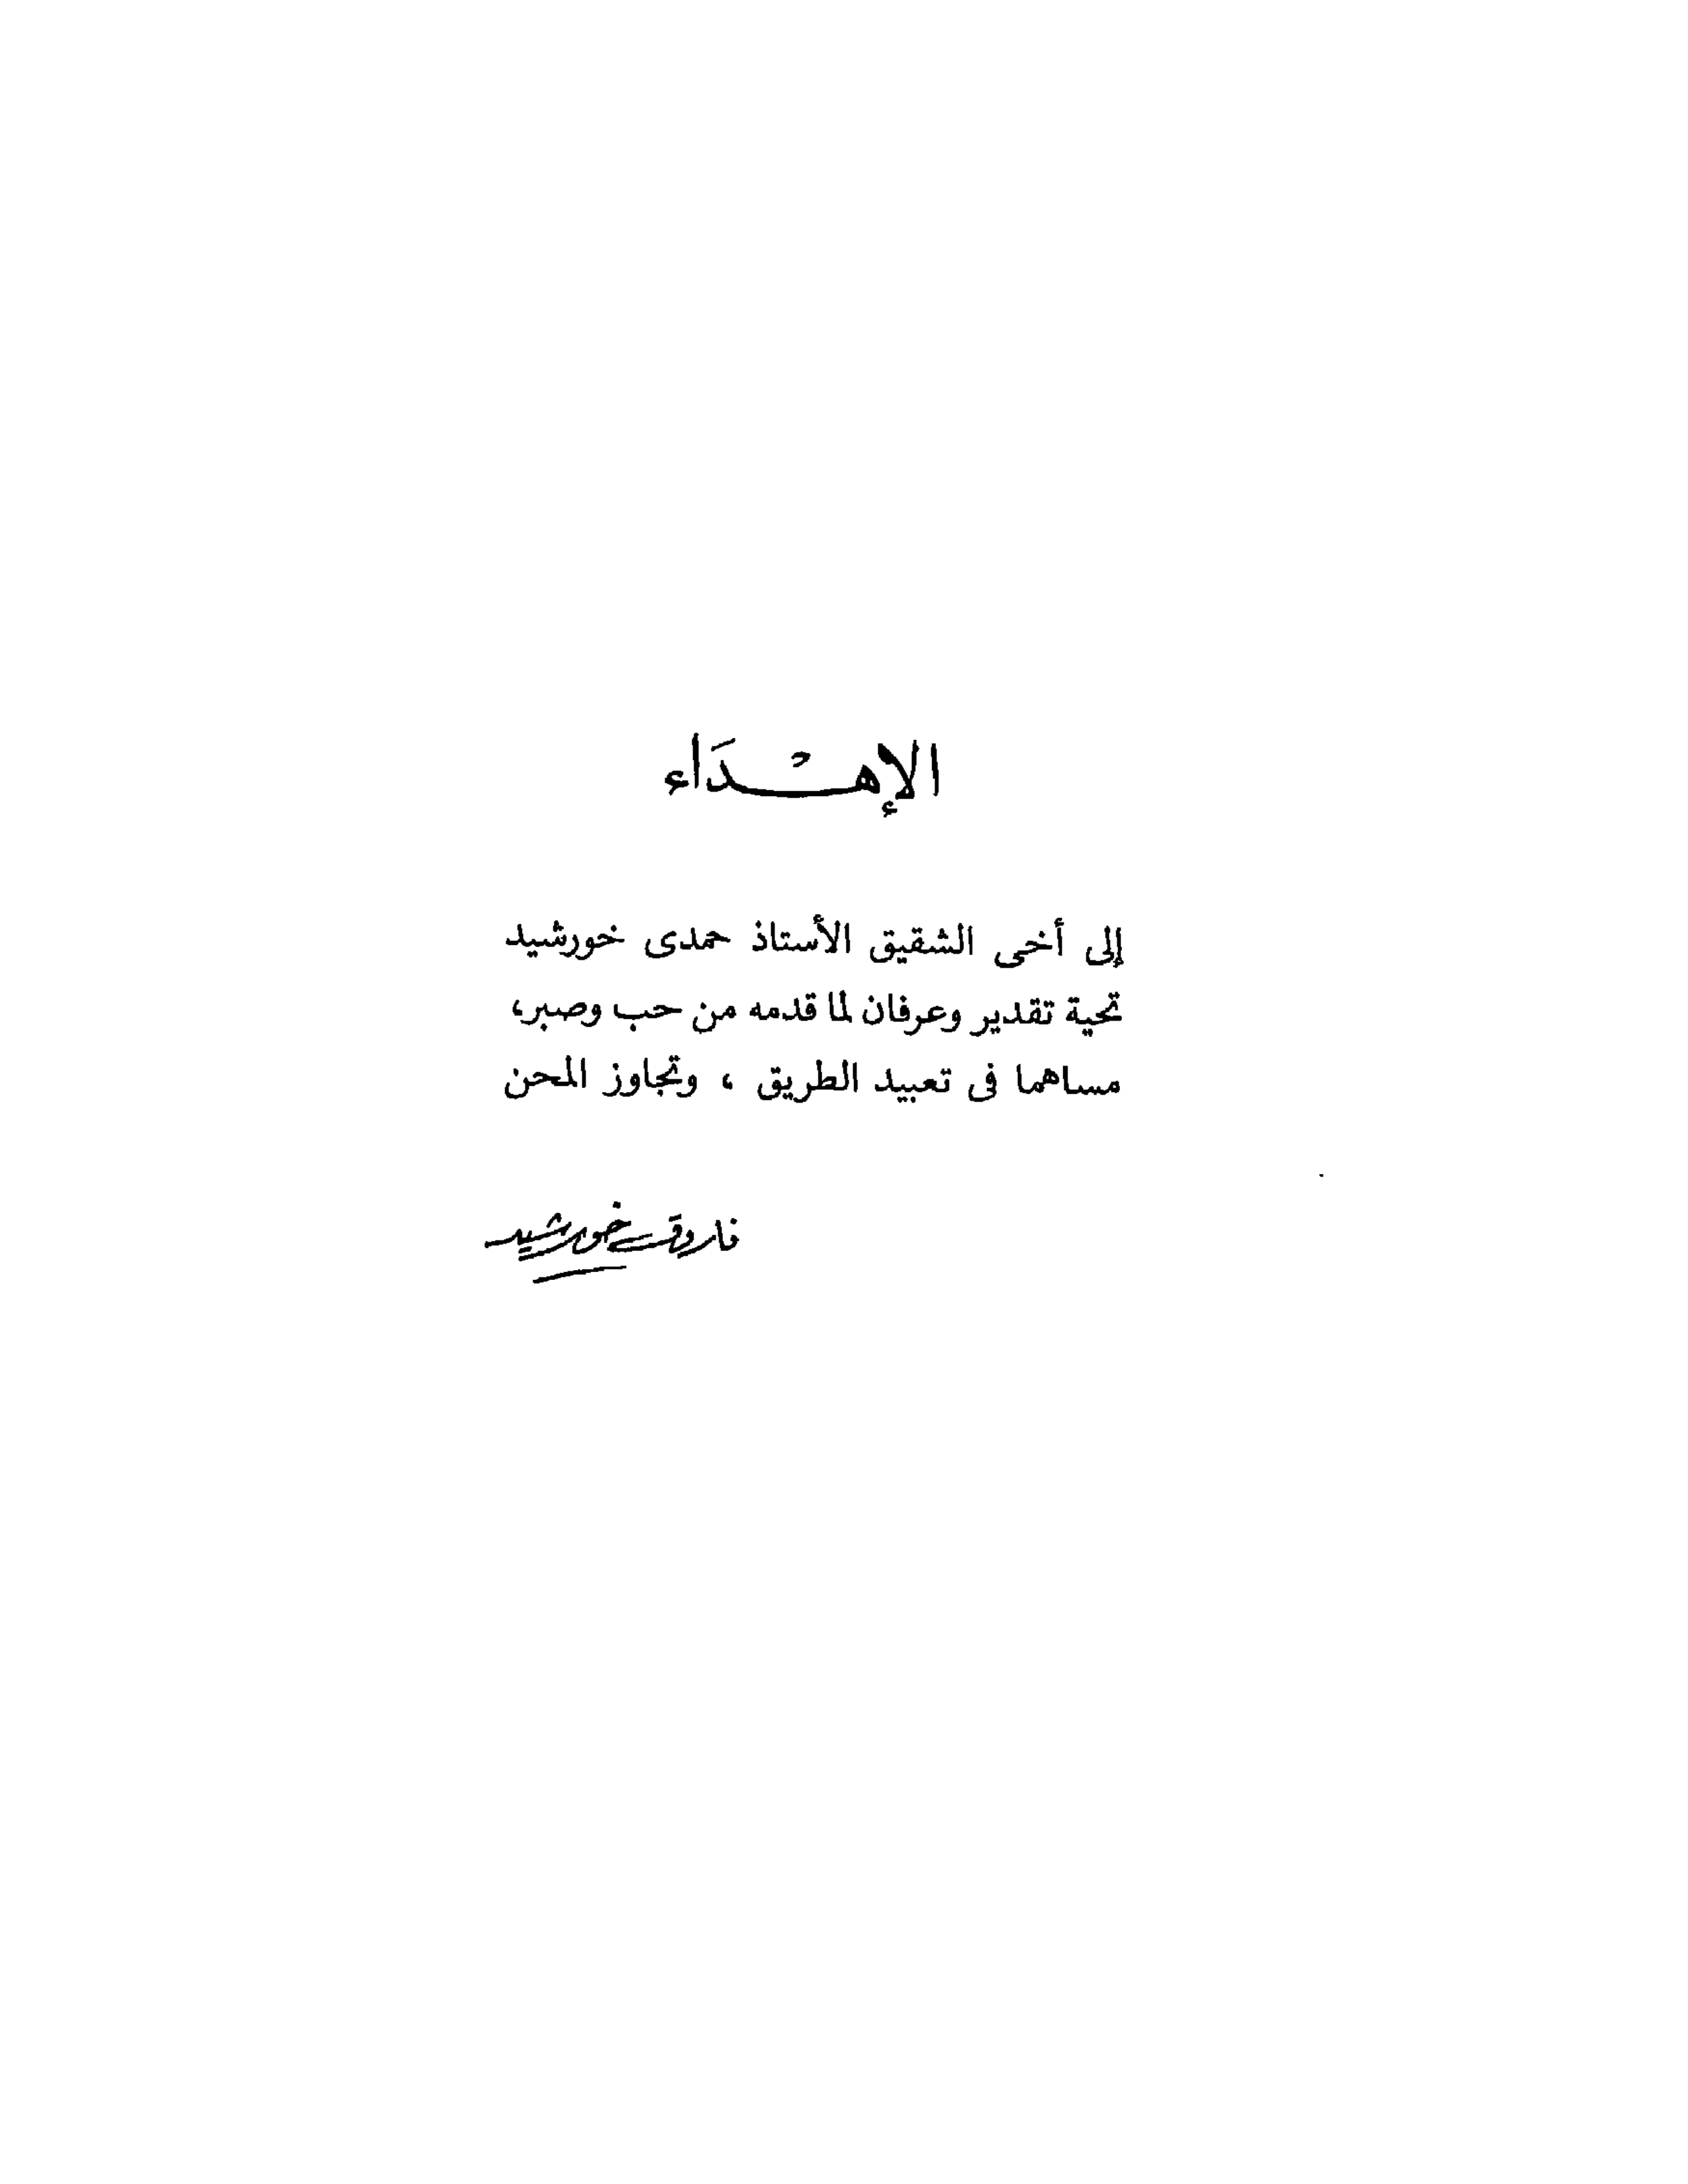 الإهْـــدَاء
إلى أخى الشقيق الأستاذ حمدى خورشيد
تحية تقدير وعرفان لما قدمه من حب وصبر،
مساهما فى تعبيد الطريق ، وتجاوز المحن
فاروق خورشيد